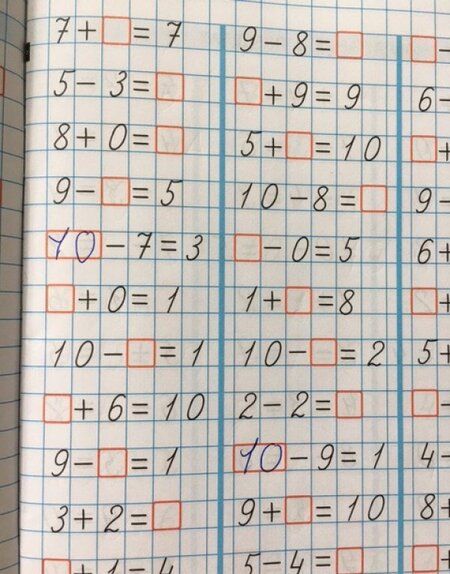 7 + □ = 7
5 − 3 = □
8 + 0 = □
9 − □ = 5
10 − 7 = 3
□ + 0 = 1
10 − □ = 1
□ + 6 = 10
9 − □ = 1
3 + 2 = □
□ + 1 = 4
9 − 8 = □
□ + 9 = 9
5 + □ = 10
10 − 8 = □
□ − 0 = 5
1 + □ = 8
10 − □ = 2
2 − 2 = □
10 − 9 = 1
9 + □ = 10
5 − 4 = □
□ −
6 −
□ +
9 −
6 +
□ +
5 +
□ −
4 −
8 +
□